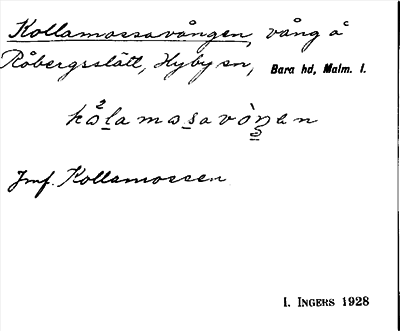 Kollamossavången, vång å
Råbergsslätt, Hyby sn, Bara hd, Malm. l.
Jmf. Kollamossen
I. INGERS 1928